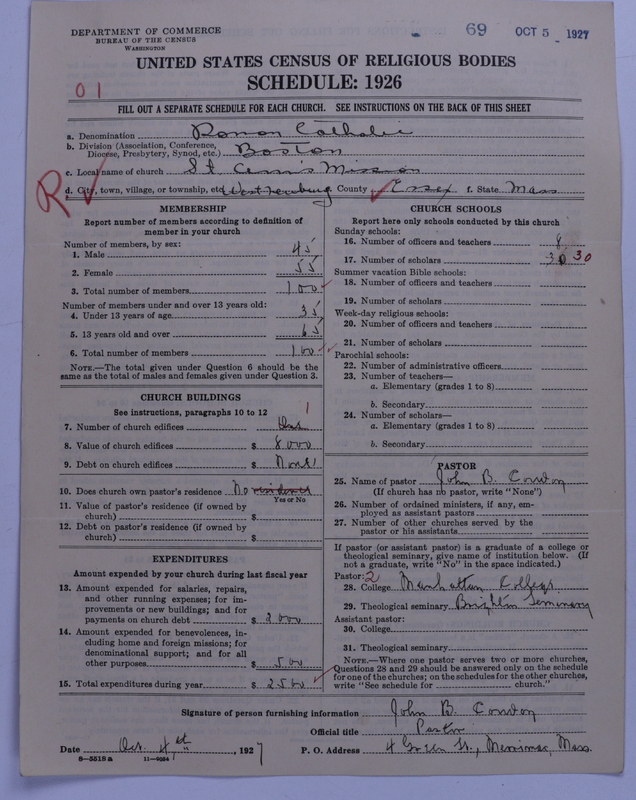 DEPARTMENT OF COMMERCE
BUREAU OF THE CENSUS
WASHINGTON
69 OCT 5 1927
UNITED STATES CENSUS OF RELIGIOUS BODIES
SCHEDULE: 1926
01
FILL OUT A SEPARATE SCHEDULE FOR EACH CHURCH. SEE INSTRUCTIONS ON THE BACK OF THIS SHEET
a. Denomination Roman Catholic
b. Division (Association, Conference, Diocese, Presbytery, Synod, etc.) Boston
c. Local name of church St Ann's Mission
R
d. City, town, village, or township, etc. West Newbury County Essex f. State Mass
MEMBERSHIP
Report number of members according to definition of
member in your church
Number of members, by sex:
1. Male 45
2. Female 55
3. Total number of members 100
Number of members under and over 13 years old:
4. Under 13 years of age 35
5. 13 years old and over 65
6. Total number of members 100
NOTE.—The total given under Question 6 should be the
same as the total of males and females given under Question 3.
CHURCH BUILDINGS
See instructions, paragraphs 10 to 12
1
7. Number of church edifices One
8. Value of church edifices $ 8000
9. Debt on church edifices $ None
10. Does church own pastor's residence No residence
Yes or No
11. Value of pastor's residence (if owned by
church) $
12. Debt on pastor's residence (if owned by
church) $
EXPENDITURES
Amount expended by your church during last fiscal year
13. Amount expended for salaries, repairs,
and other running expenses; for im-
provements or new buildings; and for
payments on church debt $ 2000
14. Amount expended for benevolences, in-
cluding home and foreign missions; for
denominational support; and for all
other purposes $ 500
15. Total expenditures during year $ 2500
CHURCH SCHOOLS
Report here only schools conducted by this church
Sunday schools:
16. Number of officers and teachers 8
17. Number of scholars 30 30
Summer vacation Bible schools:
18. Number of officers and teachers
19. Number of scholars
Week-day religious schools:
20. Number of officers and teachers
21. Number of scholars
Parochial schools:
22. Number of administrative officers
23. Number of teachers—
a. Elementary (grades 1 to 8)
b. Secondary
24. Number of scholars—
a. Elementary (grades 1 to 8)
b. Secondary
PASTOR
25. Name of pastor John B. Condon
(If church has no pastor, write "None")
26. Number of ordained ministers, if any, em-
ployed as assistant pastors
27. Number of other churches served by the
pastor or his assistants
If pastor (or assistant pastor) is a graduate of a college or
theological seminary, give name of institution below. (If
not a graduate, write "No" in the space indicated.)
Pastor: 2
28. College Manhattan College
29. Theological seminary Brighton Seminary
Assistant pastor:
30. College
31. Theological seminary
NOTE.—Where one pastor serves two or more churches,
Questions 28 and 29 should be answered only on the schedule
for one of the churches; on the schedules for the other churches,
write "See schedule for church."
Signature of person furnishing information John B. Condon
Official title Pastor
Date Oct. 4th, 1927 P. O. Address 4 Green St., Merrimac, Mass.
8—5518a 11—9554